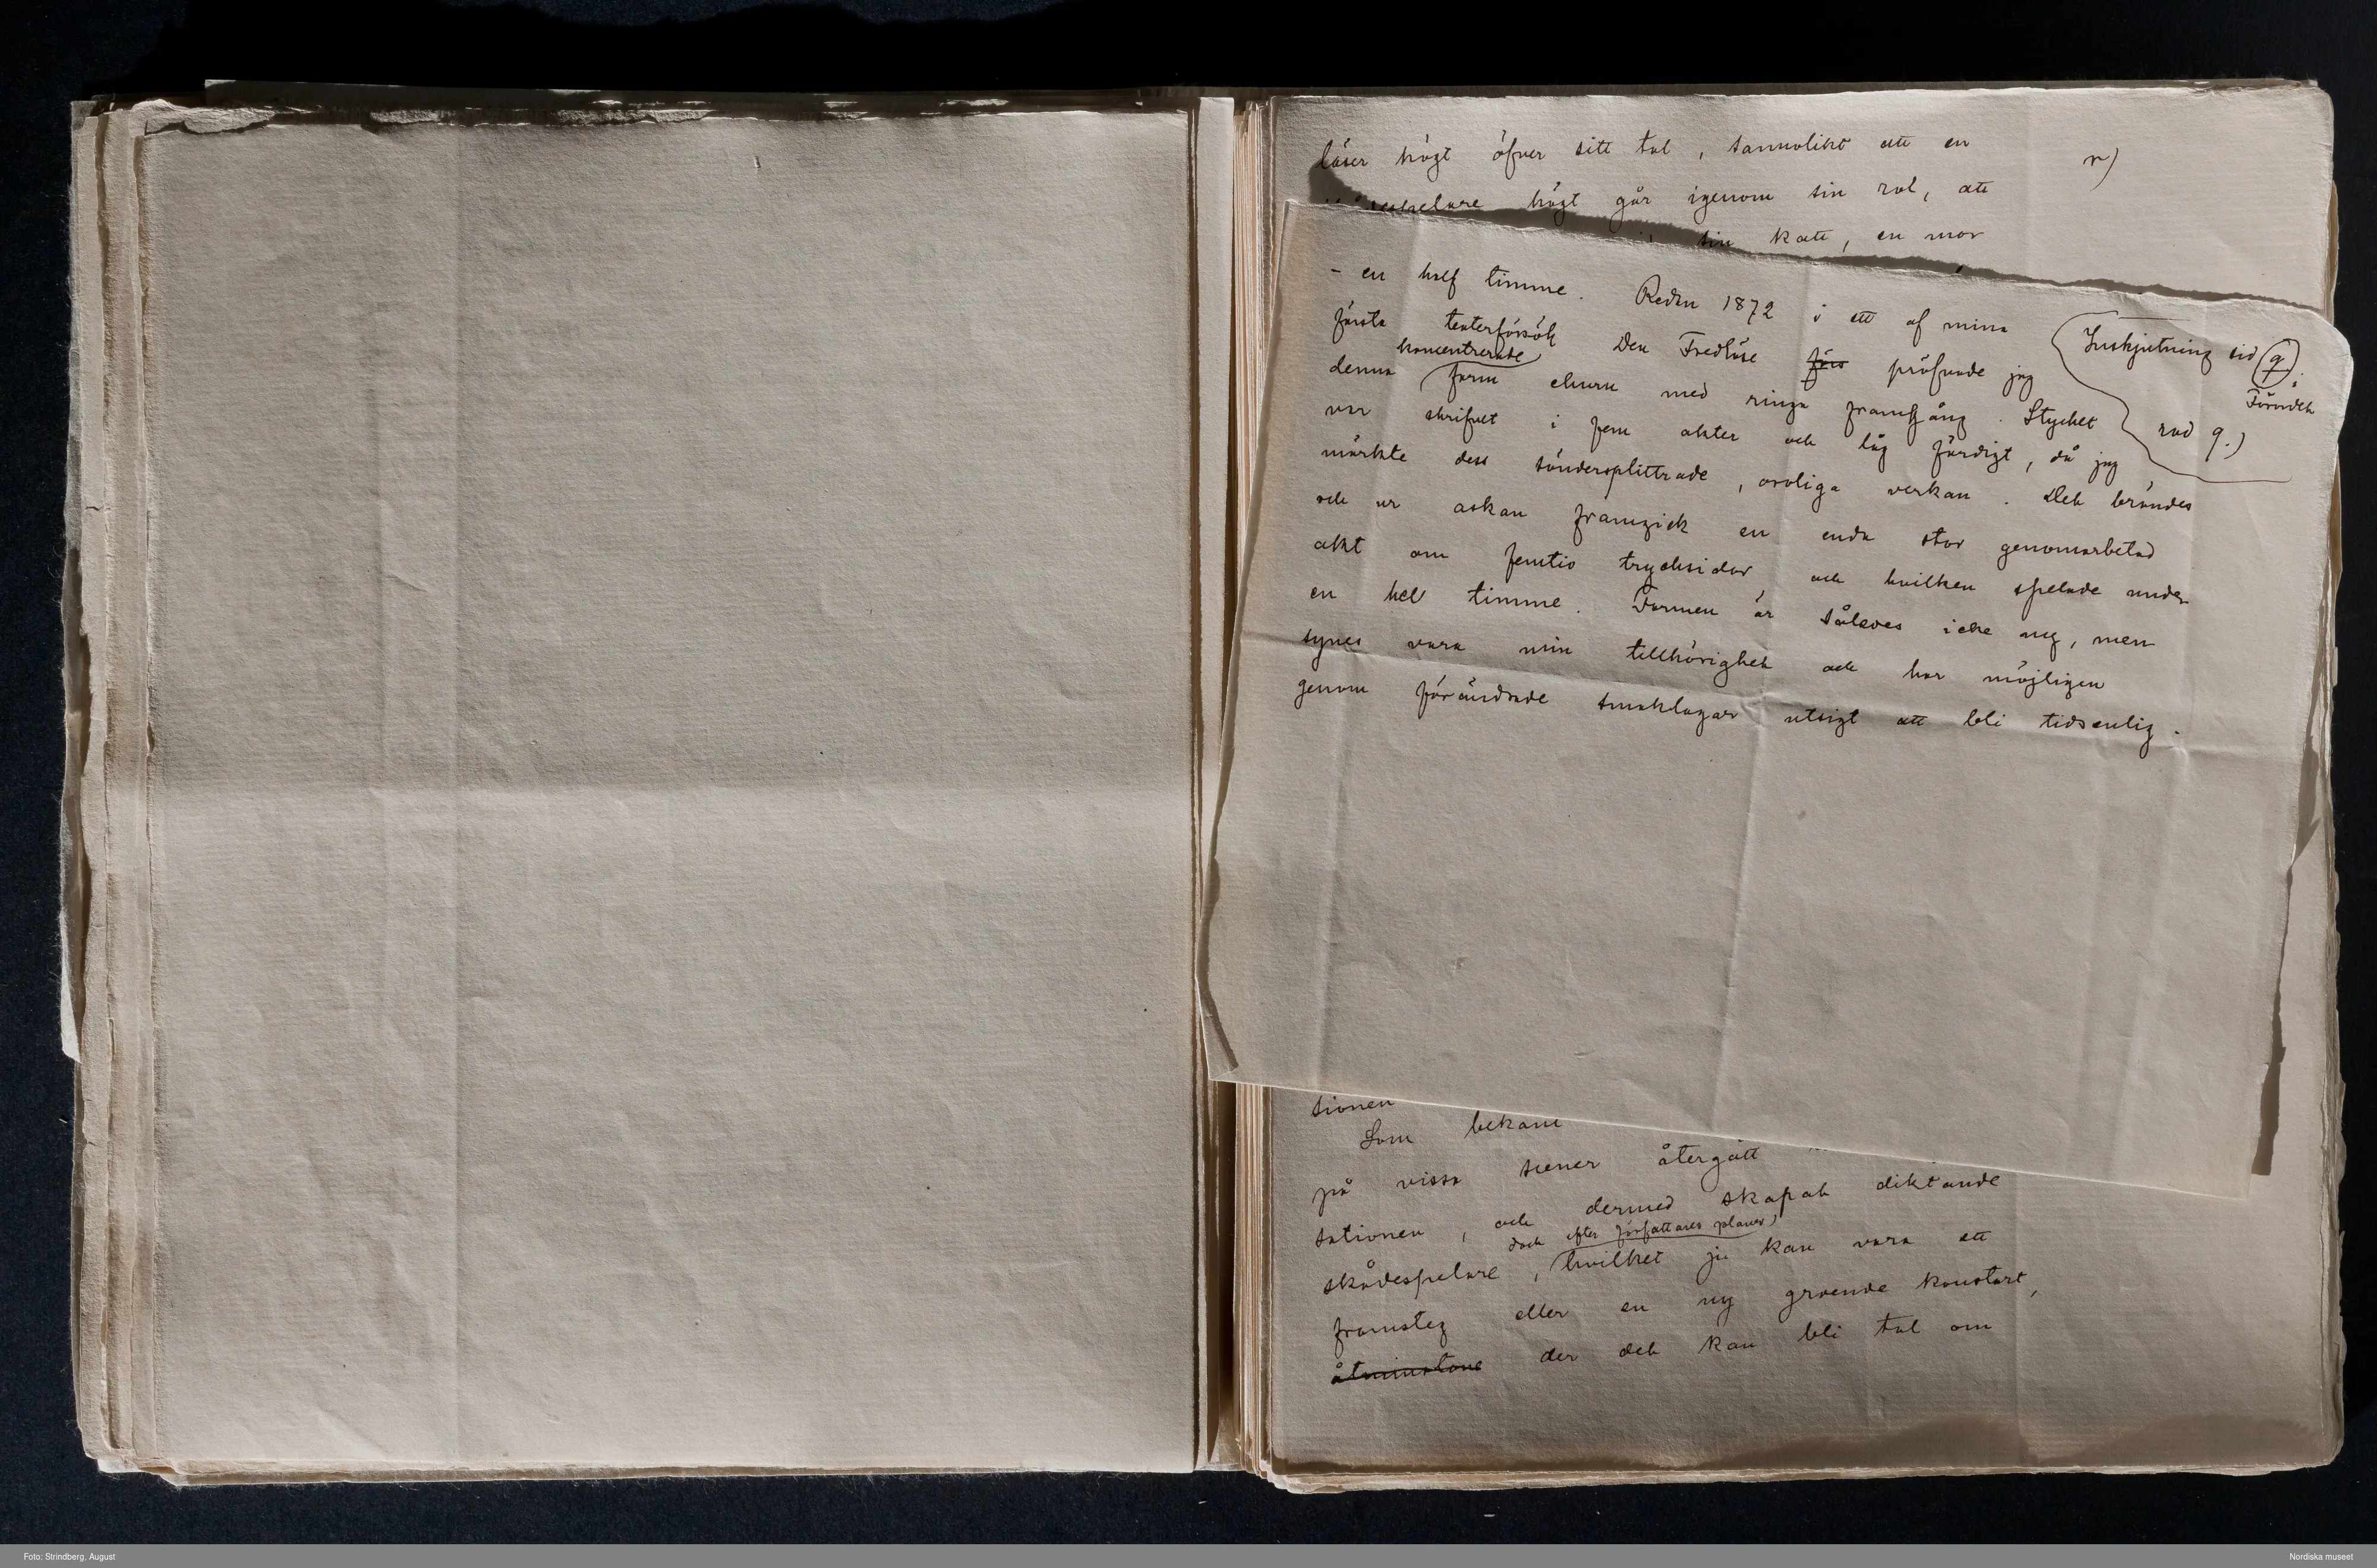 läser högt öfver sitt tal, sannolikt att en
n)
högt går igenom sin rol, att
sin katt, en mor
- en half timme. Redan 1872 i ett af mina
Inskjutning sid 9.
Företalet
rad 9.)
första teaterförsök Den Fredlöse förs pröfvade jag
koncentrerade
denna form ehuru med ringa framgång. Stycket
var skrifvet i fem akter och låg färdigt, då jag
märkte dess söndersplittrade, oroliga verkan. Det brändes
och ur askan framgick en enda stor genomarbetad
akt om femtio trycksidor, och hvilken spelade under
en hel timme. Formen är således icke ny, men
synes vara min tillhörighet och har möjligen
genom förändrade smaklagar utsigt att bli tidsenlig.
tionen
Som bekant
på vissa scener återgått
tationen, och dermed skapat diktande
dock efter författares planer,
skådespelare, hvilket ju kan vara ett
framsteg eller en ny groende konstart,
åtminstone der det kan bli tal om
Foto: Strindberg, August
Nordiska museet